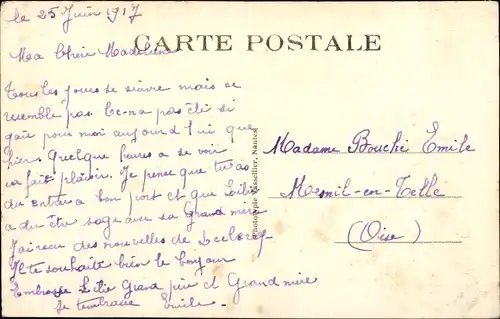 le 25 Juin 1917
CARTE POSTALE
Ma Chère Madeleine
Tous les jours se suive mais ce
resemble pas. Ce-na pas éte si
gaie pour moi aujourd'hui que
hier. Quelque heures a se voir
ca fait plaisir. Je pense que tu as
du entres a bon port et que
a du être sage avec sa Grand mère
J'ai reçu des nouvelles de Leclercq
Il te souhaite bien le bonjour
Embrasse Grand père et Grand mère
Je tembrasse Emile.
Phototypie Vassellier, Nantes
Madame Bouché Emile
Mesnil-en-Telle
(Oise)